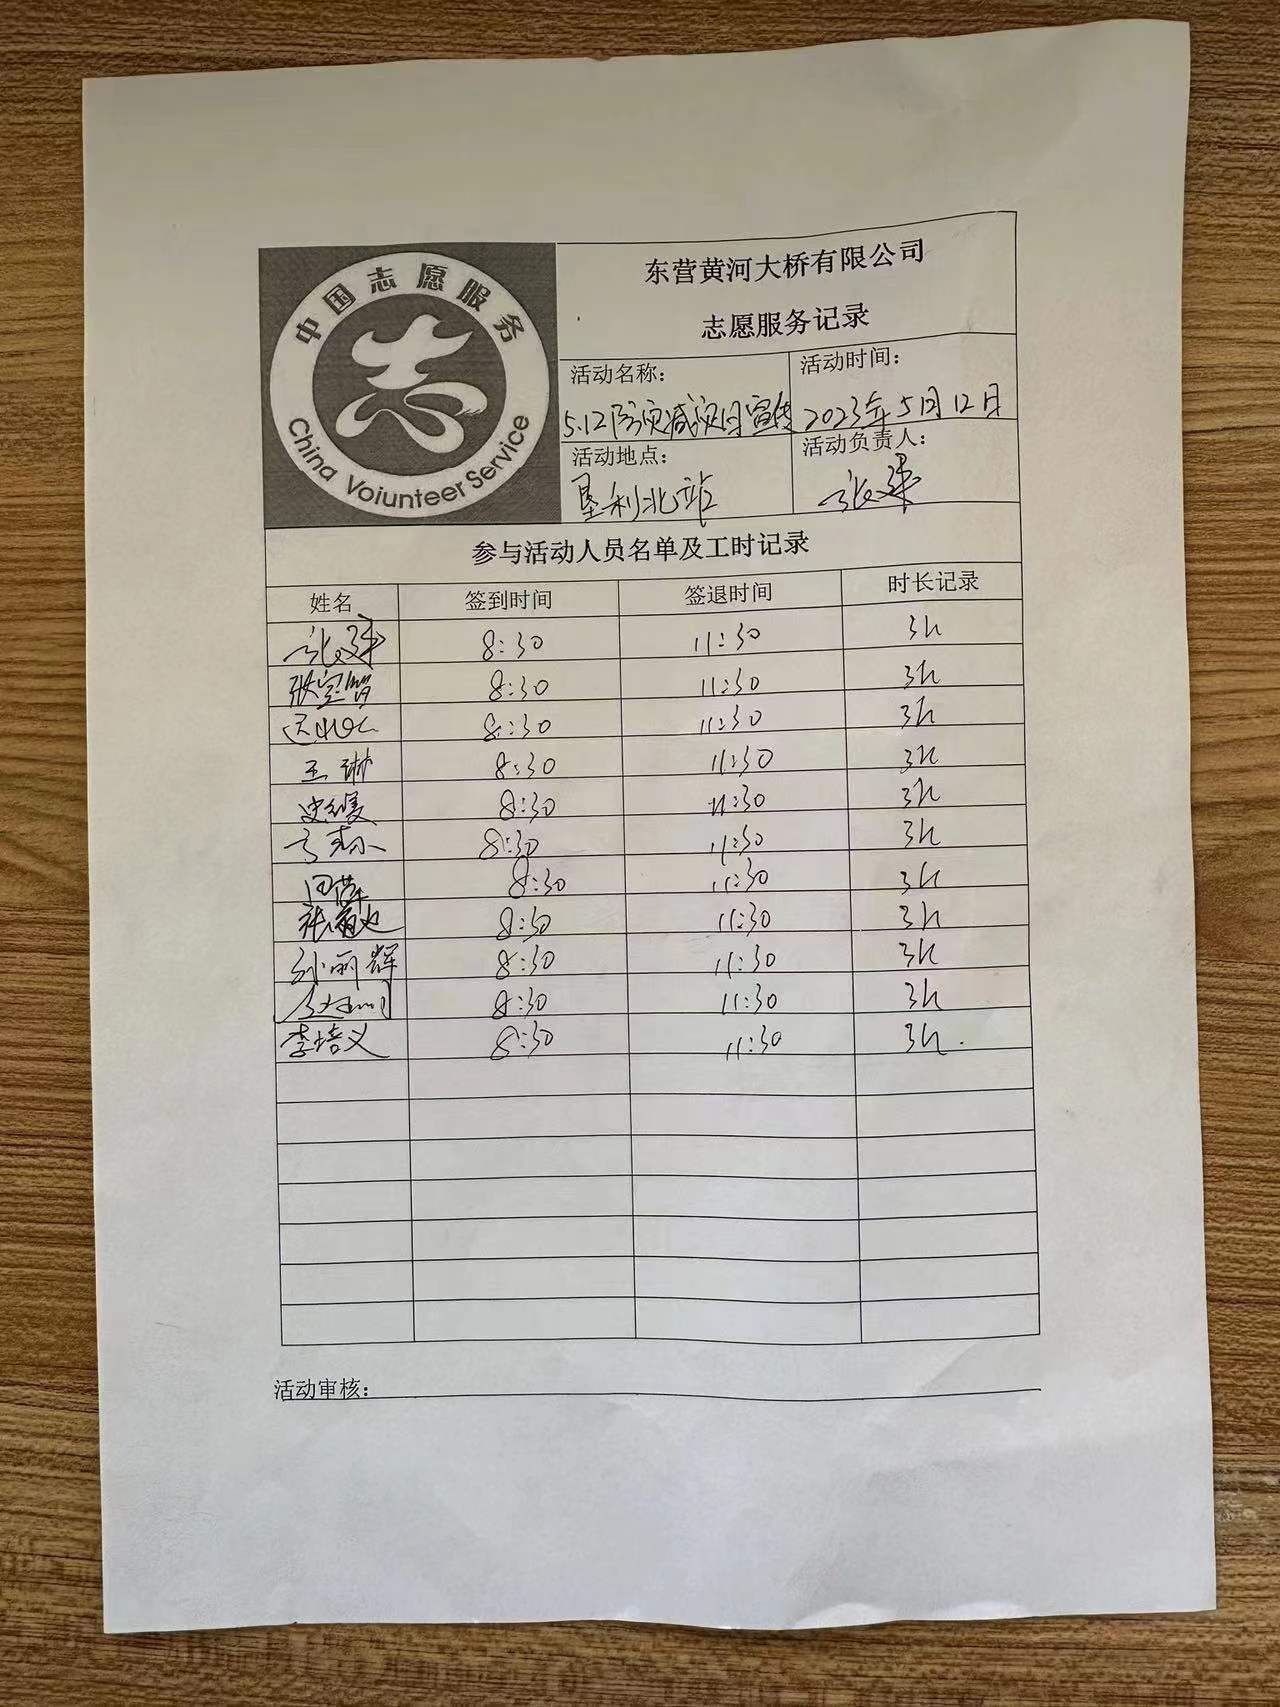 中国志愿服务
志
China Voiunteer Service
东营黄河大桥有限公司
志愿服务记录
活动名称:
5.12防灾减灾日宣传
活动时间:
2023年5月12日
活动地点:
垦利北站
活动负责人:
参与活动人员名单及工时记录
姓名 签到时间 签退时间 时长记录
8:30 11:30 3h
张宝智 8:30 11:30 3h
8:30 11:30 3h
王琳 8:30 11:30 3h
8:30 11:30 3h
8:30 11:30 3h
8:30 11:30 3h
8:30 11:30 3h
孙丽辉 8:30 11:30 3h
8:30 11:30 3h
李培义 8:30 11:30 3h.
活动审核: